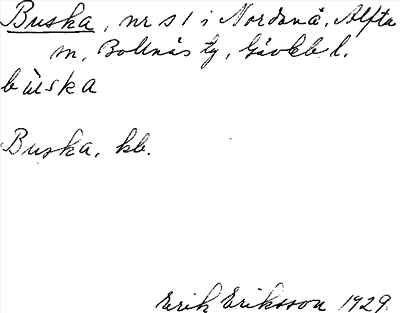 Buska, nr s1 i Nordanå, Alfta
sn, Bollnäs tg, Gävleb l.
bùska
Buska, kb.
Erik Eriksson 1929.